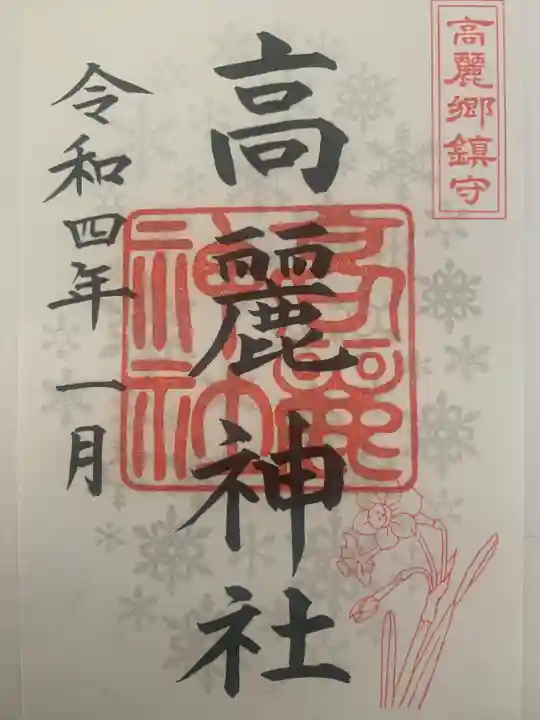 高麗郷鎮守
高麗神社
令和四年一月
高麗
神社